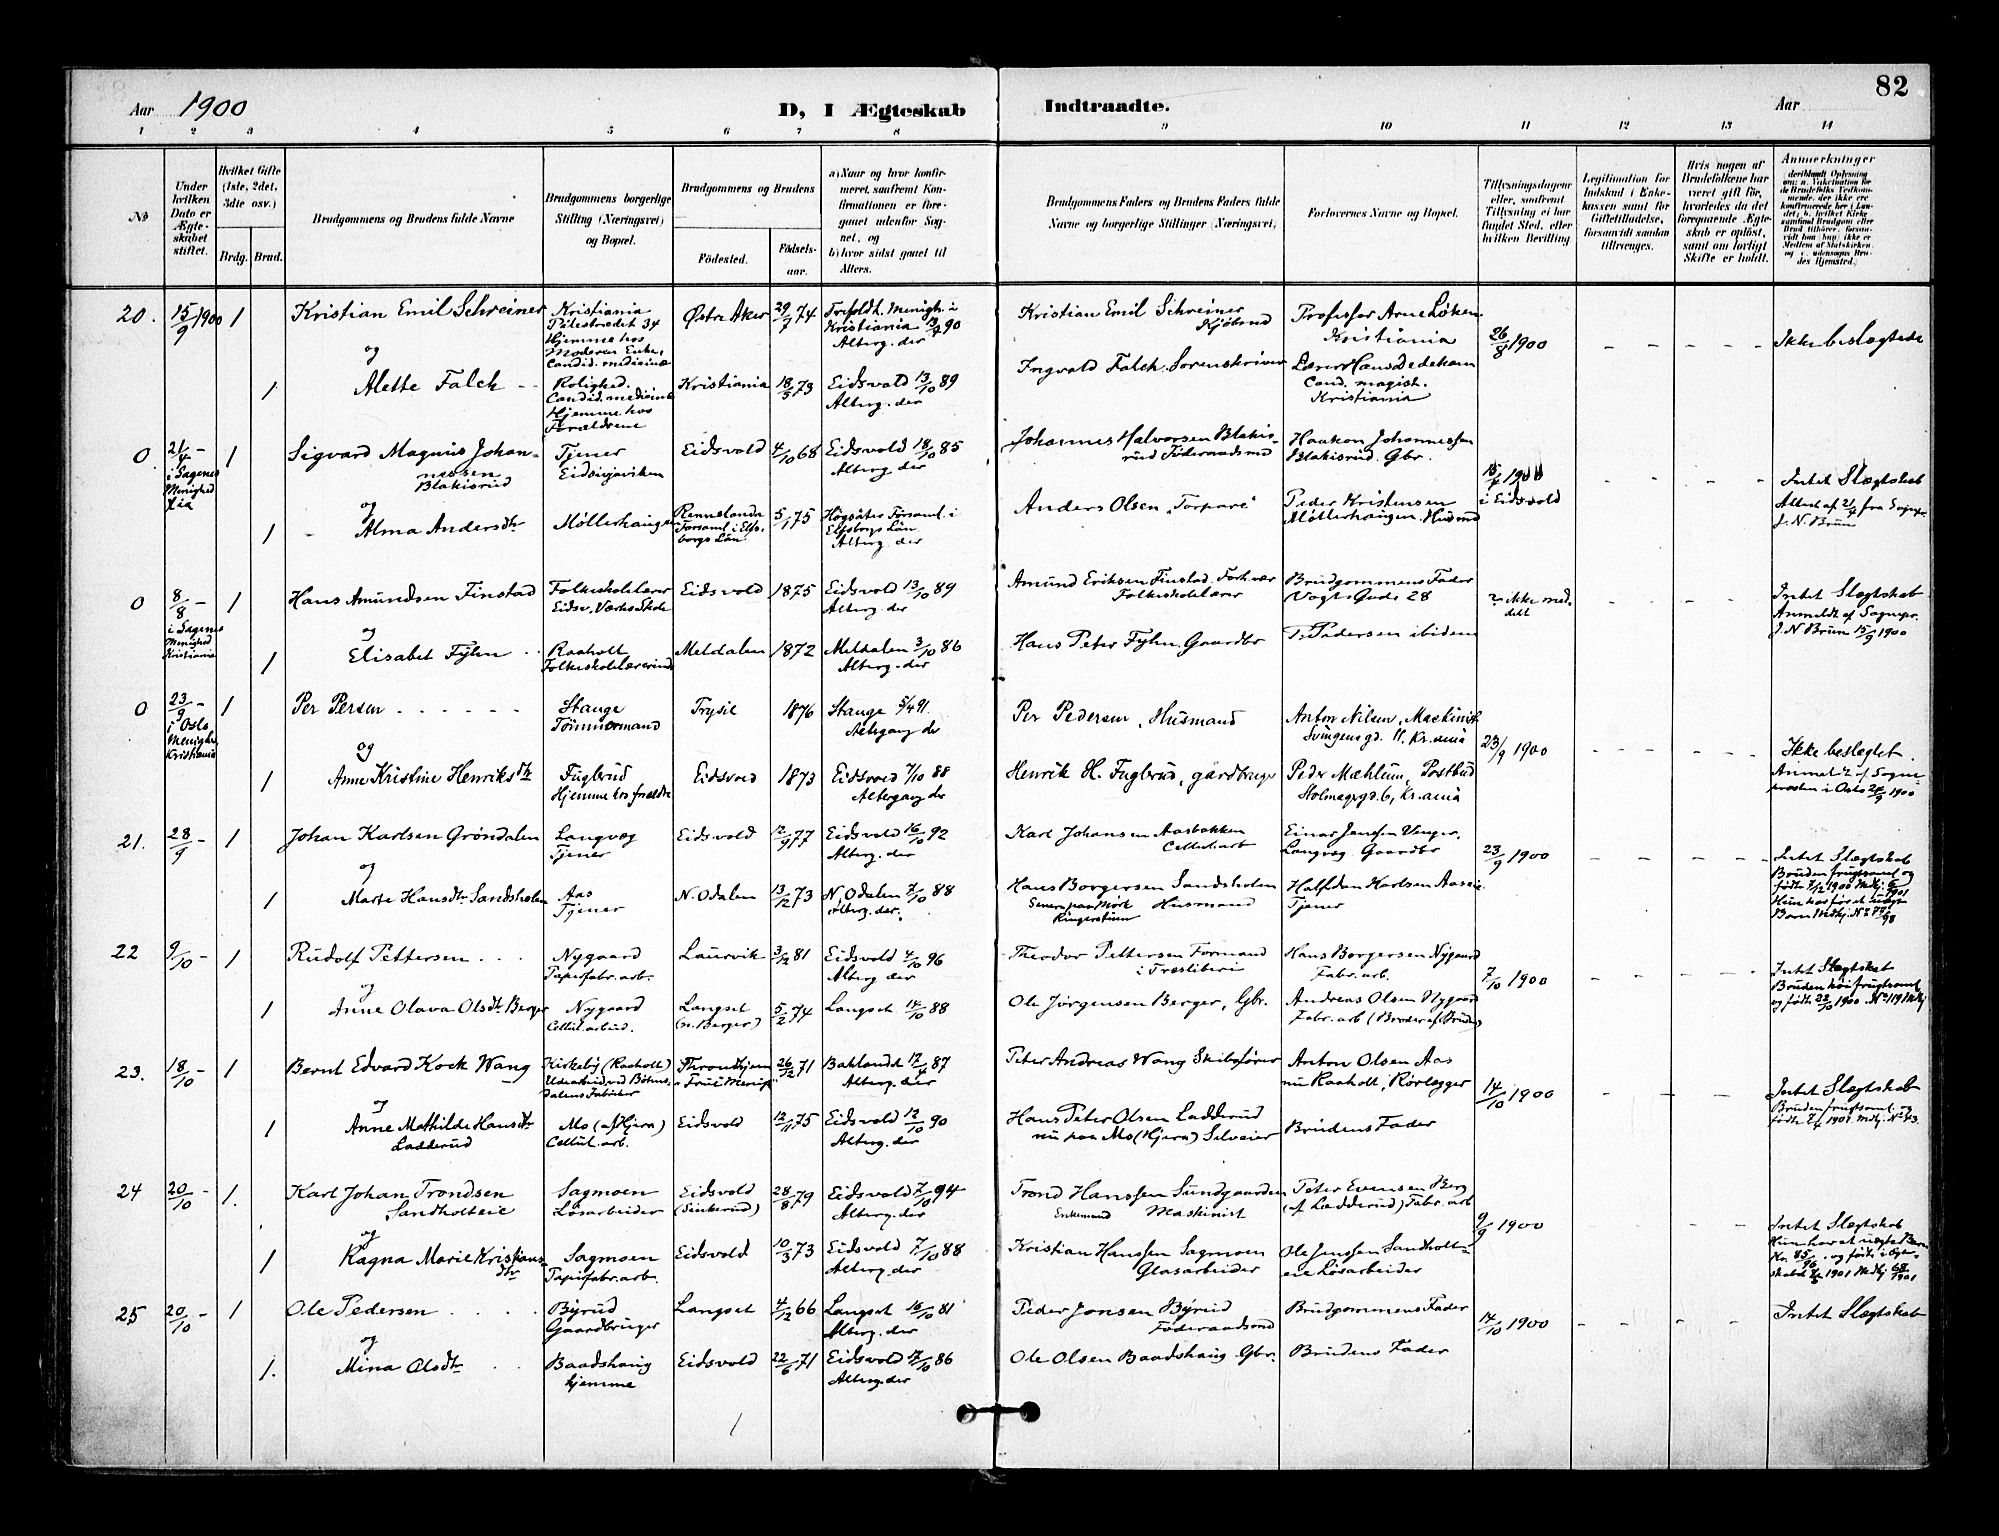 82
Aar 1900
D, I Ægteskab Indtraadte.
Aar
1 2 3 4 5 6 7 8 9 10 11 12 13 14
No
Under hvilken Dato er Ægteskabet stiftet.
Hvilket Gifte (1ste, 2det, 3die osv.)
Brdg. Brud.
Brudgommens og Brudens fulde Navne
Brudgommens borgerlige Stilling (Næringsvei) og Bopæl.
Brudgommens og Brudens
Fødested.
Fødselsaar.
a) Naar og hvor konfirmeret, saafremt Konfirmationen er foregaaet udenfor Sognet, og
b) hvor sidst gaaet til Alters.
Brudgommens Faders og Brudens Faders fulde Navne og borgerlige Stillinger (Næringsvei).
Forlovernes Navne og Bopæl.
Tillysningsdagene eller, saafremt Tillysning ei har fundet Sted, efter hvilken Bevilling
Legitimation for Indskud i Enkekassen samt for Giftetilladelse, forsaavidt saadan tiltrænges.
Hvis nogen af Brudefolkene har været gift før, hvorledes da det foregaaende Ægteskab er opløst, samt om lovligt Skifte er holdt.
Anmerkninger
20. 15/9 1900 1 Kristian Emil Schreiner
Kristiania Pilestrædet 34 Hjemme hos Moderen Enke, Candid. medicinæ
Østre Aker 29/7 74
Trefoldh. Menigh. i Kristiania 90 Alterg. der
Kristian Emil Schreiner Kjøbmd
Professor Arne Løken Kristiania
26/8 1900
Ikke beslægtede
og
1 Alette Falck
Rolighed. Candid. medicinæ Hjemme hos Forældrene
Kristiania 18/5 73
Eidsvold 13/10 89 Alterg. der
Ingvald Falch. Sorenskriver
Lærer Hans Dedekam Cand. magist. Kristiania
0 21/4 - i Sagenes Menighed Xia 1 Sigvard Magnus Johannessen Blakisrud
Tjener Eidsvold 4/10 68
Eidsvold 18/10 85 Alterg. der
Johannes Halvorsen Blakisrud Føderaadsmd
Haakon Johannessen Blakisrud. Gbr.
15/4 1900 i Eidsvold
Intet Slægtskab
Attest af 21/4 fra Sognepr. J. N. Brun
og
1 Alma Andersdtr
Møllerhaugen
Rennelanda Forsaml. i Elfsborgs Län 5/1 75
Högsäter Församl. i Elfsborgs Län Alterg. der
Anders Olsen "Torpare"
Peder Kristensen Møllerhaugen Husmd
0 8/8 - i Sagenes Menighed Kristiania 1 Hans Amundsen Finstad
Folkeskolelærer Eidsv. Værks Skole
Eidsvold 1875
Eidsvold 13/10 89 Alterg. der
Amund Eriksen Finstad. Forh.vær Folkeskolelærer
Brudgommens Fader Vogts Gade 28
? ikke meddelt
Intet Slægtskab
Anmeldt af Sognepr. J. N Brun 15/9 1900
og
1 Elisabet Fylm
Raaholt Folkeskolelærerinde
Meldalen 1872
Meldalen 3/10 86 Alterg. der
Hans Peter Fylm, Gaardbr
T. Pedersen ibidem
0 23/9 - i Oslo Menighed Kristiania 1 Per Persen
Stange Tømmermand
Trysil 1876
Stange 5/4 91. Altergang der
Per Pedersen, Husmand
Anton Nilsen, Maskinist Svingens gd. 11. Kr.ania
23/9 1900
Ikke beslægtet.
Anmeldt af Sognepræsten i Oslo 24/9 1900
og
1 Anne Kristine Henriksdtr
Fuglrud Hjemme hos forældre
Eidsvold 1873
Eidsvold 7/10 88 Altergang der
Henrik H. Fuglerud, gårdbruger
Peder Mæhlum, Postbud Kr.ania
21. 28/9 - 1 Johan Karlsen Grøndalen
Langvæg Tjener
Eidsvold 12/9 77
Eidsvold 16/10 92 Alterg. der
Karl Johansen Aasbakken Cellul.arb
Einar Janssen Venger, Langvæg Gaardbr
23/9 1900
Intet Slægtskab
Bruden frugtsomel. og fødte 7/12 1900
og
1 Marte Hansdtr Sandsholen
Aas Tjener
N. Odalen 13/12 73
N. Odalen 7/10 88 Alterg. der.
Hans Borgersen Sandsholen Husmand
Halfdan Karlsen Aaseie Tjener
22 9/10 - 1 Rudolf Pettersen
Nygaard Papirfabr.arb.
Laurvik 3/12 81
Eidsvold 4/10 96 Alterg der
Theodor Pettersen Formand i Træsliberi
Hans Borgersen Nygaard Fabr.arb.
7/10 1900
Intet Slægtskab
Bruden høifrugtsomel og fødte 22/10 1900. No 119 Mdkj
og
1 Anne Olava Olsdtr Berger
Nygaard Cellul.arbeid.
Langset (n. Berger) 5/2 74
Langset 14/10 88
Ole Jørgensen Berger, Gbr.
Andreas Olsen Nygaard Fabr.arb (Broder af Bruden)
23. 18/10 - 1 Bernt Edvard Kock Wang
Kirkeby (Raaholt) Udearbeid ved Bøhnsdalens Fabriker
Throndhjem "Frue Menigh" 26/12 71
Baklandet 17/4 87 Alterg. der
Peter Andreas Wang Skibsfører
Anton Olsen Aas nu Raaholt, Rørlægger
14/10 1900
Intet Slægtskab
Bruden frugtsomel. og fødte 1901. Mdkj. No 43.
og
1 Anne Mathilde Hansdtr Ladderud
Mo (af Hjera) Cellul. arb.
Eidsvold 12/11 75
Eidsvold 12/10 90 Alterg. der
Hans Peter Olsen Ladderud nu paa Mo (Hjera) Selveier
Brudens Fader
24 20/10 - 1. Karl Johan Trondsen Sandholteie
Sagmoen Løsarbeider
Eidsvold (Sinkerud) 28/8 79
Eidsvold 7/10 94 Alterg. der
Trond Hanssen Sundgaarden Enkemand Maskinist
Peter Evensen Berg (af Ladderud) Fabr. arb
9/9 1900
Intet Slægtskab
og
1 Ragna Marie Kristiansdtr
Sagmoen Papirfabr.arb.
Eidsvold 10/3 73
Eidsvold 7/10 88 Alterg. der
Kristian Hanssen Sagmoen Glasarbeider
Ole Jenssen Sandholteie Løsarbeider
25 20/10 - 1 Ole Pedersen
Byrud Gaardbruger
Langset 4/12 66
Langset 16/10 81 Alterg. der
Peder Jonsen Byrud Føderaadsmd
Brudgommens Fader
14/10 1900
Intet Slægtskab
og
1. Mina Olsdtr
Baadshaug hjemme
Eidsvold 22/6 71
Eidsvold 17/10 86 Alterg. der
Ole Olsen Baadshaug Gbr.
Brudens Fader